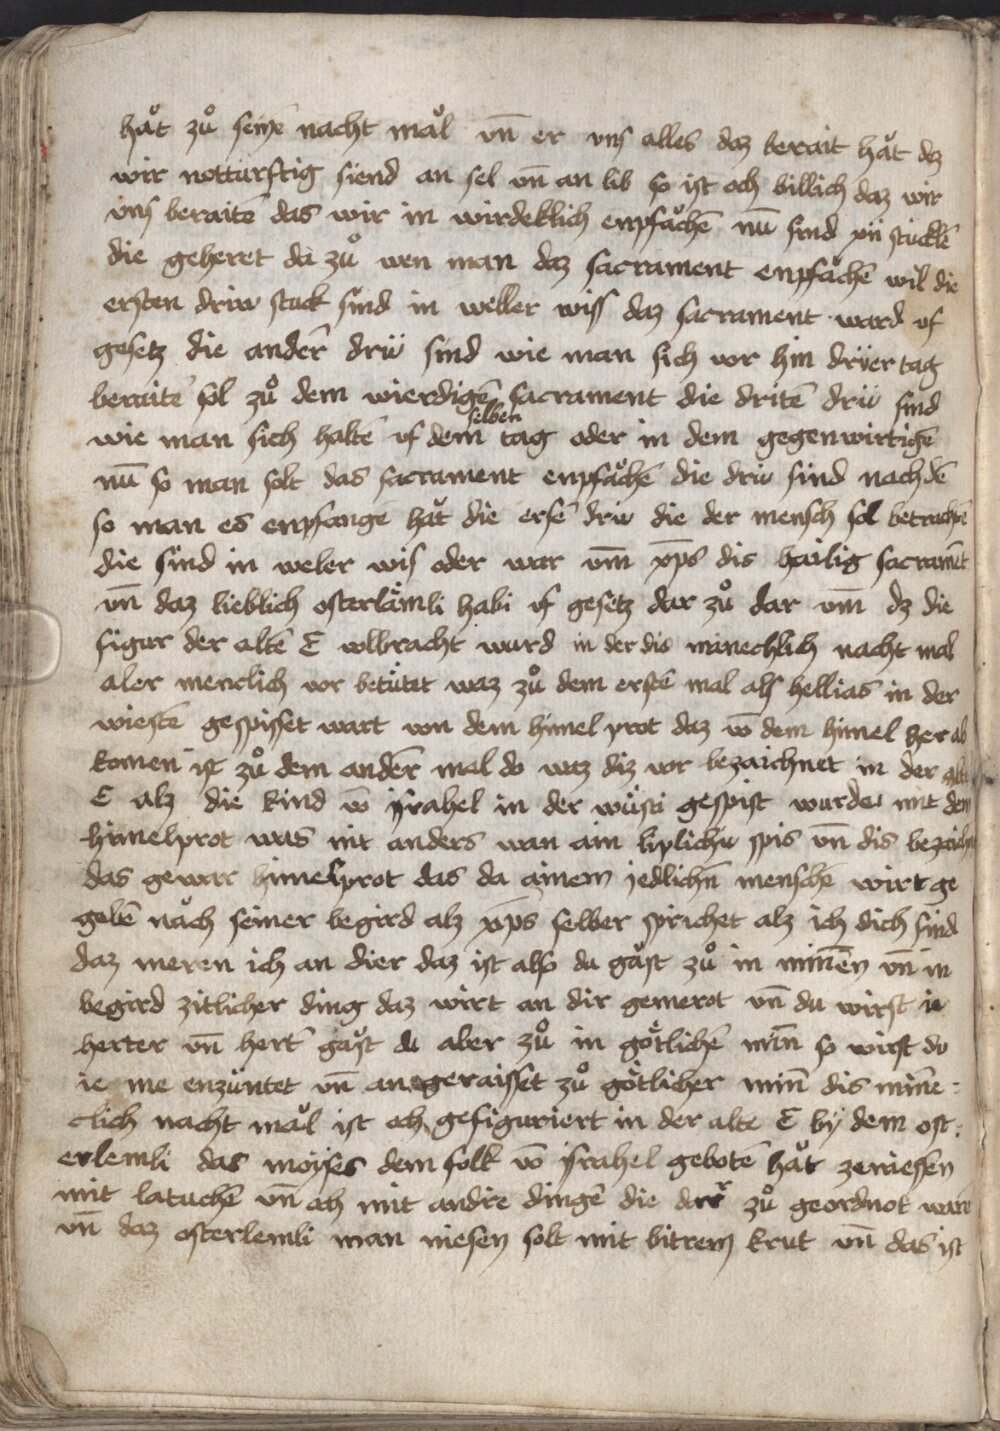 haͦt zuͦ seinē nacht maͦl vn̄ er vns alles daz berait haͦt dz
wir notturftig siend an sel vn̄ an lib so ist och billich daz wir
vns beraitē das wir in wirdeklich enpfaͦchē nū sind xii stucklē
die geheret da zuͦ wen man daz sacrament enpfaͦchē wil die
ersten driw stuck sind in weller wiss daz sacrament ward vf
gesetz die ander̄ drü sind wie man sich vor hin drÿer tag
beraitē sol zuͦ dem wierdigē sacrament die dritē drü sind
wie man sich haltē vf dem selben tag oder in dem gegenwirtigē
nū so man solt das sacrament enpfaͦchē die driu sind nachdē
so man es enpfange haͦt die ersē driu die der mensch sol betrachtē
die sind in weler wis oder war vm̄ xp̄s dis hailig sacramēt
vn̄ daz lieblich osterlämli habi vf gesetz dar zuͦ dar vm̄ dz die
figur der altē E volbracht wurd in der dis minechlich nacht mal
aler menclich vor betütet waz zuͦ dem erstē mal als hellias in der
wiestē gespisset wart von dem himel prot daz vō dem himel her ab
komen ist zuͦ dem ander̄ mal do waz diz vor bezaichnet in der altē
E alz die kind vō israhel in der wuͤsti gespist wurdē mit dem
himelprot was nit anders wan ain liplichu spis vn̄ dis bezaichn
das gewar himelprot das da ainem jedlichn̄ menschē wirt ge
gebē naͦch seiner begird alz xp̄s selber sprichet alz ich dich sind
daz meren ich an dier daz ist also du gaͦst zuͦ in minen̄ vn̄ in
begird zitlicher ding daz wirt an dir gemerot vn̄ du wirst ie
herter vn̄ hert gaͦst du aber zuͦ in götlichē min̄ so wirst du
ie me enzüntet vn̄ angeraisset zuͦ götlicher min̄ dis mine-
clich nacht maͦl ist och gefiguriert in der altē E bÿ dem ost-
erlemli das moÿses dem folk vō israhel gebotē haͦt zeniessen
mit latuchē vn̄ och mit andre dingē die dar zuͦ geordnot warē
vn̄ daz osterlemli man niesen solt mit bitrem krut vn̄ das ist